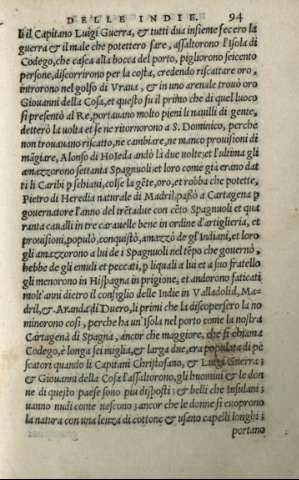 DELLE INDIE. 94
li il Capitano Luigi Guerra, & tutti dua insieme fecero la
guerra & il male che potettero fare, assaltorono l'Isola di
Codego, che casca alla bocca del porto, pigliorono seicento
persone, discorrirono per la costa, credendo riscattare oro,
introrono nel golfo di Vraua, & in uno arenale trouò oro
Giouanni della Cosa, et questo fu il primo che di quel luoco
si presentò al Re, portauano molto pieni li nauilli di gente,
detterò la uolta et se ne ritornorono a S. Dominico, perche
non trouauano riscatto, ne cambiare, ne manco prouisioni di
māgiare, Alonso di Hoieda andò là due uolte, et l'ultima gli
amazzorono settanta Spagnuoli et loro come già erano dati
ti li Caribi p schiaui, colse la gēte, oro, et robba che potette,
Pietro di Heredia naturale di Madril, passò a Cartagena p
gouernatore l'anno del trēta due con cēto Spagnuoli et qua
ranta caualli in tre carauelle bene in ordine d'artiglieria, et
prouisioni, populò, conquistò, amazzò de gl'Indiani, et loro
gli amazzorono a lui de i Spagnuoli nel tēpo che gouernò,
hebbe de gli emuli et peccati, p liquali a lui et a suo fratello
gli menorono in Hispagna in prigione, et andorono faticati
molt'anni dietro il consiglio delle Indie in Valladolid, Ma-
dril, & Aranda di Duero, li primi che la discopersero la no
minorono cosi, perche ha un'Isola nel porto come la nostra
Cartagena di Spagna, ancor che maggiore, che si chiama
Codego, è longa sei miglia, & larga due, era populata di pe
scatori quando li Capitani Christofano, & Luigi Guerra;
& Giouanni della Cosa l'assaltorono, gli huomini & le don
ne di questo paese sono piu disposti & belli che Insulani;
uanno nudi come nascono; ancor che le donne si cuoprono
la natura con una leuza di cottone & usano capelli longhi;
portano